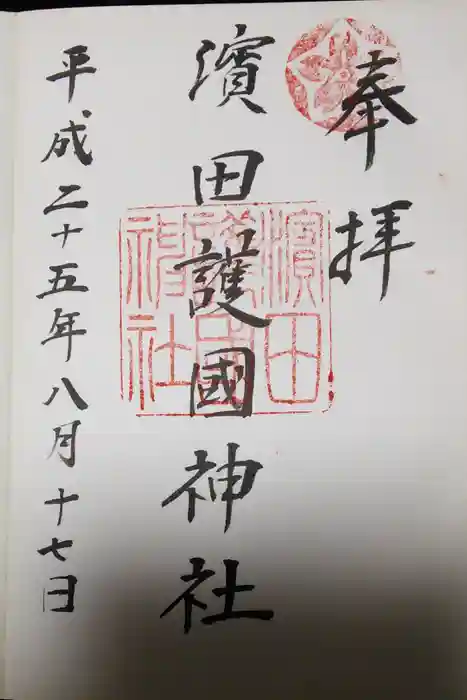 奉拝
濱田護國神社
平成二十五年八月十七日
濱田
護國
神社